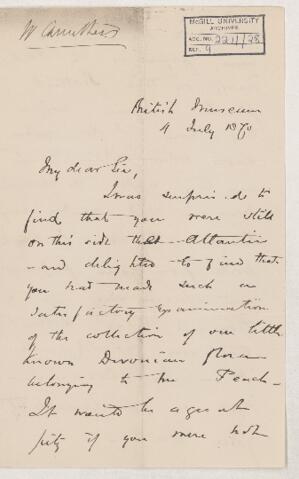 W Carruthers
McGILL UNIVERSITY
ARCHIVES
ACC. NO. 2211/28
REF. 9
British Museum
4 July 1870
My dear Sir,
I was surprised to
find that you were still
on this side the Atlantic
and delighted to find that
you had made such a
satisfactory examination
of the collection of our little
known Devonian flora
belonging to Mr Peach -
It would be a great
pity if you were not